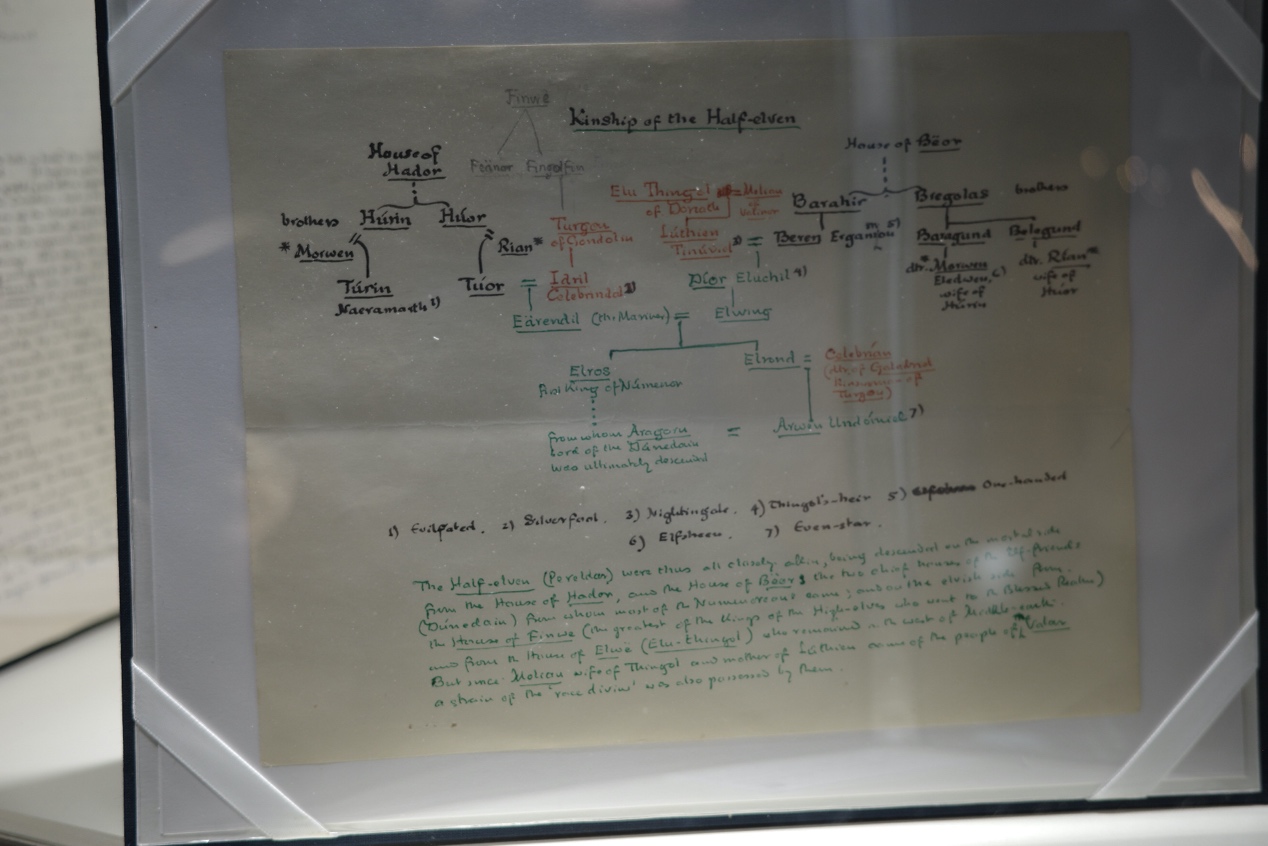 Finwë
Kinship of the Half-elven
House of Hador
Fëanor Fingolfin
House of Bëor
brothers Húrin Húor
Elu Thingol = Melian
of Doriath of Valinor
Barahir Bregolas brothers
* Morwen Rian*
Turgon of Gondolin
Lúthien Tinúviel 3) = Beren 5)
Baragund Belegund
Túrin 1)
Túor = Idril Celebrindal 2)
Díor Eluchil 4)
dtr. * Morwen Eledwen, 6) wife of Húrin
dtr. Rían * wife of Húor
Eärendil (the Mariner) = Elwing
Elros
First King of Númenor
Elrond = Celebrían
(dtr. of Galadriel
kinswoman of
Turgon)
from whom Aragorn
Lord of the Dúnedain
was ultimately descended
= Arwen Undómiel 7)
1) Evilfated. 2) Silverfoot. 3) Nightingale. 4) Thingol's-heir 5) One-handed
6) Elfsheen. 7) Even-star.
The Half-elven (Pereldar) were thus all closely akin, being descended on the mortal side
from the House of Hador, and the House of Bëor, the two chief houses of the Elf-friends
(Dúnedain) from whom most of the Númenóreans came; and on the elvish side from
the House of Finwë (the greatest of the kings of the High-elves who went to the Blessed Realm)
and from the House of Elwë (Elu-thingol) who remained in the west of Middle-earth.
But since Melian wife of Thingol and mother of Lúthien came of the people of the Valar
a strain of the 'race divine' was also possessed by them.